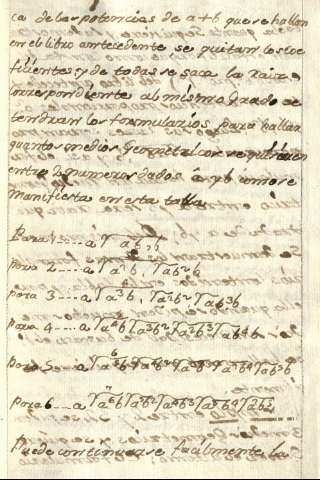 ca de las potencias de a+b que se hallan
en el libro antecedente se quitan los coe
ficientes, y de todas se saca la raiz
correspondiente al mismo grado se
tendran los formularios para hallar
quantos medios geometricos se quisieren
entre 2 numeros dados a y b como se
manifiesta en esta tabla
Para 1 --- a √ab, b
para 2 --- a √a²b, √ab² b
para 3 --- a √a³b, √a²b² √ab³ b
para 4 --- a √a⁴b √a³b² √a²b³ √ab⁴ b
para 5 --- a
para 6 --- a
Puede continuarse facilmente la